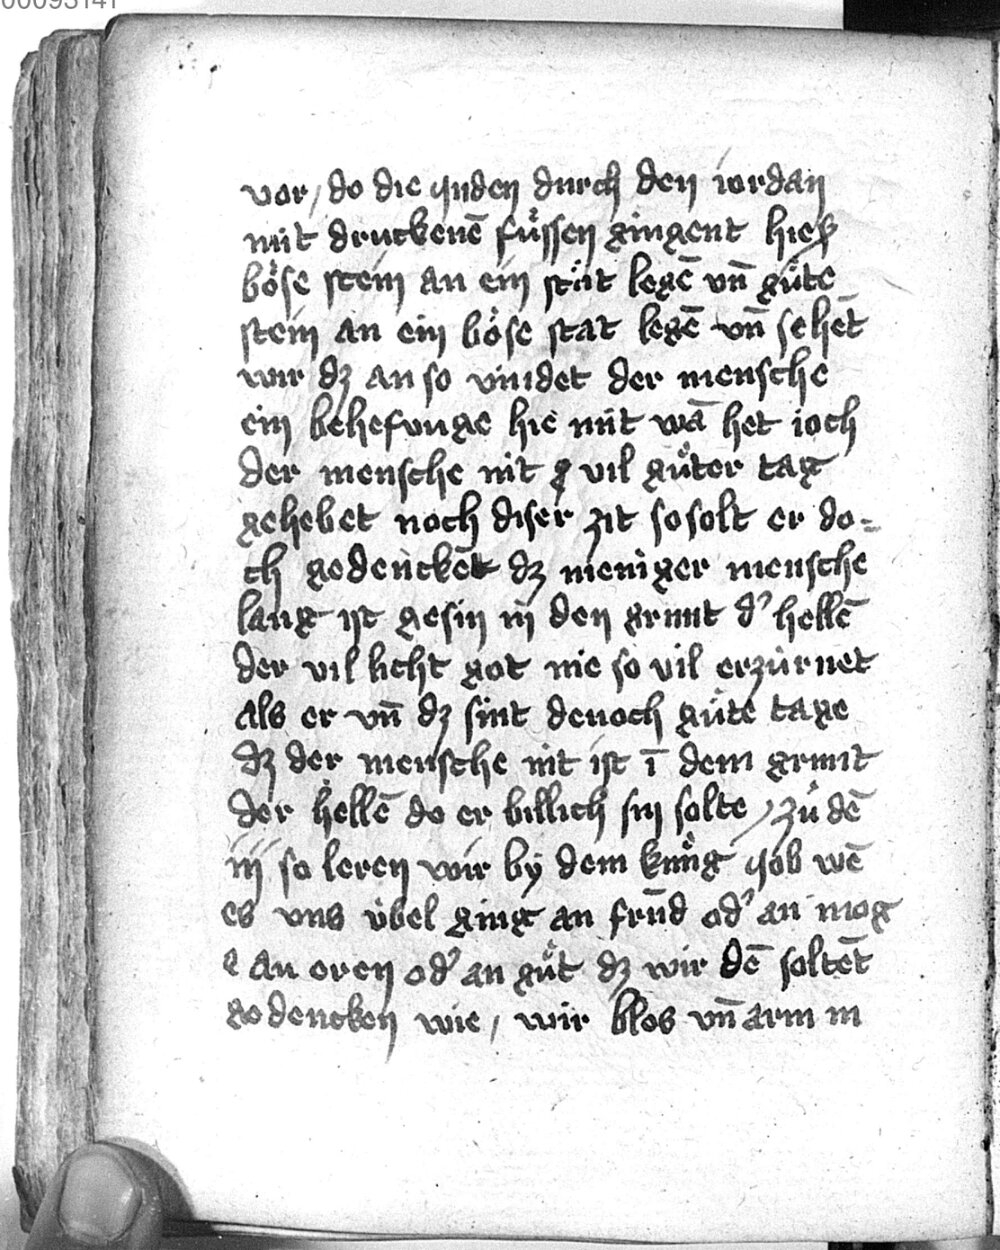 00093141
vor / do die juden durch den iordan
mit druckenē fuͤssen gingent hies
boͤse stein an ein stat legē vn̄ guͤte
stein an ein boͤse stat legē vn̄ sehēt
wir dz an so vindet der mensche
ein behefunge hie mit wā het ioch
der mensche nit vil guͦter tag
gehebet noch diser zit so solt er do=
ch gedenckēt dz meniger mensche
lang ist gesin in den grunt d' hellē
der vil licht got nie so vil erzúrnet
als er vn̄ dz sint denoch guͦte tage
dz der mensche nit ist ī dem grunt
der hellē do er billich sin solte / zuͦ dē
iij so leren wir by dem kúng job wē
es vns úbel ging an frúnd od' an mog
e an oren od' an guͦt dz wir dē soltēt
gedencken wie / wir blos vn̄ arm in